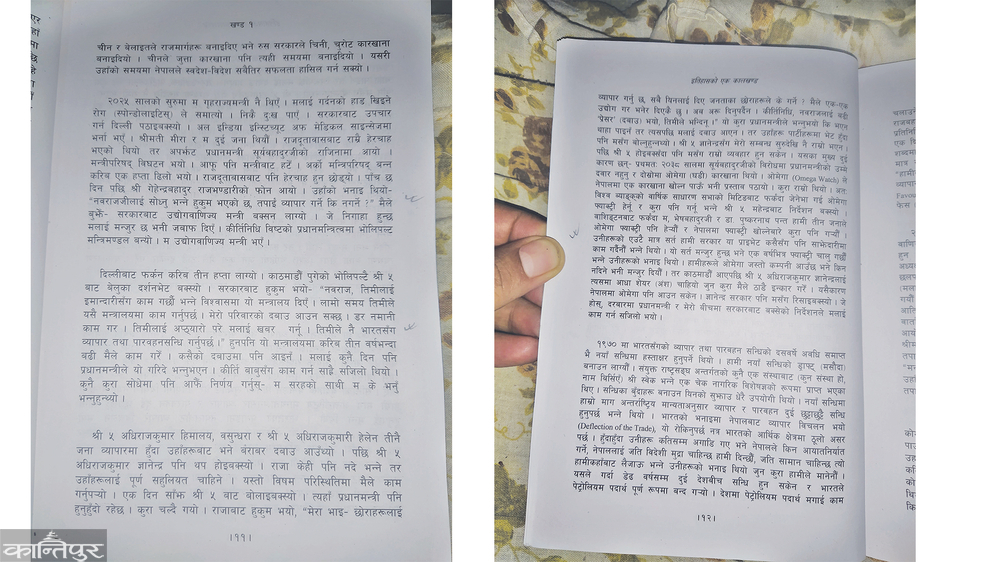 खण्ड १
चीन र बेलाइतले राजमार्गहरू बनाइदिए भने रुस सरकारले चिनी, चुरोट कारखाना
बनाइदियो । चीनले जुत्ता कारखाना पनि त्यही समयमा बनाइदियो । यसरी
उहाँको समयमा नेपालले स्वदेश-विदेश सबैतिर सफलता हासिल गर्न सक्यो ।
२०२५ सालको सुरुमा म गृहराज्यमन्त्री नै थिएँ । मलाई गर्दनको हाड खिइने
रोग (स्पोन्डोलाइटिस) ले समात्यो । निकै दुःख पाएँ । सरकारबाट उपचार
गर्न दिल्ली पठाइबक्स्यो । अल इन्डिया इन्स्टिच्युट अफ मेडिकल साइन्सेजमा
भर्ना भएँ । श्रीमती मीरा र म दुई जना थियौं । राजदूतावासबाट राम्रै हेरचाह
भएको थियो तर अपर्झट प्रधानमन्त्री सूर्यबहादुरजीको राजिनामा आयो ।
मन्त्रीपरिषद् विघटन भयो । आफू पनि मन्त्रीबाट हटेँ । अर्को मन्त्रिपरिषद् बन्न
करिब एक हप्ता ढिलो भयो । राजदूतावासबाट पनि हेरचाह हुन छोड्यो । पाँच छ
दिन पछि श्री गेहेन्द्रबहादुर राजभण्डारीको फोन आयो । उहाँको भनाइ थियो-
"नवराजजीलाई सोध्नु भन्ने हुकुम भएको छ, तपाई ब्यापार गर्ने कि नगर्ने ?" मैले
बुझेँ- सरकारबाट उद्योगवाणिज्य मन्त्री बक्सन लाग्यो । जे निगाहा हुन्छ
मलाई मन्जुर छ भनी जवाफ दिएँ । कीर्तिनिधि विष्टको प्रधानमन्त्रित्वमा भोलिपल्ट
मन्त्रिमण्डल बन्यो । म उद्योगवाणिज्य मन्त्री भएँ ।
दिल्लीबाट फर्कन करिब तीन हप्ता लाग्यो । काठमाडौं पुगेको भोलिपल्टै श्री ५
बाट बेलुका दर्शनभेट बक्स्यो । सरकारबाट हुकुम भयो- "नवराज, तिमीलाई
इमान्दारीसँग काम गर्छौ भन्ने विश्वासमा यो मन्त्रालय दिएँ । लामो समय तिमीले
यसै मन्त्रालयमा काम गर्नुपर्छ । मेरो परिवारको दबाउ आउन सक्छ । डर नमानी
काम गर । तिमीलाई अप्ठ्यारो परे मलाई खबर गर्नु । तिमीले नै भारतसँग
व्यापार तथा पारवहनसन्धि गर्नुपर्छ ।" हुनपनि यो मन्त्रालयमा करिब तीन वर्षभन्दा
बढी मैले काम गरेँ । कसैको दवाउमा पनि आइनँ । मलाई कुनै दिन पनि
प्रधानमन्त्रीले यो गरिदे भन्नुभएन । कीर्ति बाबुसँग काम गर्न साह्रै सजिलो थियो ।
कुनै कुरा सोधेमा पनि आफै निर्णय गर्नुस्- म सरहको साथी म के भनूँ
भन्नुहुन्थ्यो ।
श्री ५ अधिराजकुमार हिमालय, वसुन्धरा र श्री ५ अधिराजकुमारी हेलेन तीनै
जना व्यापारमा हुँदा उहाँहरूबाट भने बराबर दबाउ आउँथ्यो । पछि श्री ५
अधिराजकुमार ज्ञानेन्द्र पनि थप होइबक्स्यो । राजा केही पनि नदे भन्ने तर
उहाँहरूलाई पूर्ण सहुलियत चाहिने । यस्तो विषम परिस्थितिमा मैले काम
गर्नुपर्‍यो । एक दिन साँझ श्री ५ बाट बोलाइबक्स्यो । त्यहाँ प्रधानमन्त्री पनि
हुनुहुँदो रहेछ । कुरा चल्दै गयो । राजाबाट हुकुम भयो, "मेरा भाइ- छोराहरूलाई
।११।
कान्तिपुर
इतिहासको एक कालखण्ड
व्यापार गर्नु छ, सबै यिनलाई दिए जनताका छोराहरूले के गर्ने ? मैले एक-एक
उद्योग गर भनेर दिएकै छु । अब अरू दिनुपर्दैन । कीर्तिनिधि, नवराजलाई बढी
'प्रेसर' (दबाउ) भयो, तिमीले भन्दिनू ।" यो कुरा प्रधानमन्त्रीले भन्नुभयो कि भएन
थाहा पाइनँ तर त्यसपछि मलाई दबाउ आएन । तर उहाँहरू पार्टीहरूमा भेट हुँदा
पनि मसँग बोल्नुहुन्नथ्यो । श्री ५ ज्ञानेन्द्रसँग मेरो सम्बन्ध सुरुदेखि नै राम्रो भएन ।
पछि श्री ५ होइबक्सँदा पनि मसँग राम्रो व्यवहार हुन सकेन । यसका मुख्य दुई
कारण छन्- प्रथमतः २०२८ सालमा सूर्यबहादुरजीको विरोधमा प्रधानमन्त्रीको उम्मे
दवार नहुनु र दोस्रोमा ओमेगा (घडी) कारखाना थियो । ओमेगा (Omega Watch) ले
नेपालमा एक कारखाना खोल्न पाऊँ भनी प्रस्ताव पठायो । कुरा राम्रो थियो । अतः
विश्व ब्याङ्कको वार्षिक साधारण सभाको मिटिङबाट फर्कदा जेनेभा गई ओमेगा
फ्याक्ट्री हेर्नु र कुरा पनि गर्नु भन्ने श्री ५ महेन्द्रबाट निर्देशन बक्स्यो ।
वाशिङटनबाट फर्कदा म, भेषबहादुरजी र डा. पुष्करनाथ पन्त हामी तीन जनाले
ओमेगा फ्याक्ट्री पनि हेर्‍यौं र नेपालमा फ्याक्ट्री खोल्नेबारे कुरा पनि गर्‍यौं ।
उनीहरूको एउटै मात्र सर्त हामी सरकार या प्राइभेट कसैसँग पनि साझेदारीमा
काम गर्दैनौं भन्ने थियो । यो सर्त मन्जुर हुन्छ भने एक वर्षभित्र फ्याक्ट्री चालु गर्छौं
भन्ने उनीहरूको भनाइ थियो । हामीहरूले ओमेगा जस्तो कम्पनी आउँछ भने किन
नदिने भनी मन्जुर दियौं । तर काठमाडौं आएपछि श्री ५ अधिराजकुमार ज्ञानेन्द्रलाई
त्यसमा आधा शेयर (अंश) चाहियो जुन कुरा मैले ठाडै इन्कार गरेँ । यसैकारण
नेपालमा ओमेगा पनि आउन सकेन । ज्ञानेन्द्र सरकार पनि मसँग रिसाइबक्स्यो । जे
होस्, दरबारमा प्रधानमन्त्री र मेरो बीचमा सरकारबाट बक्सेको निर्देशनले मलाई
काम गर्न सजिलो भयो ।
१९७० मा भारतसँगको व्यापार तथा पारवहन सन्धिको दसवर्षे अवधि समाप्त
भै नयाँ सन्धिमा हस्ताक्षर हुनुपर्ने थियो । हामी नयाँ सन्धिको ड्राफ्ट (मसौदा)
बनाउन लाग्यौं । संयुक्त राष्ट्रसङ्घ अन्तर्गतको कुनै एक संस्थाबाट (कुन संस्था हो,
नाम बिर्सिएँ) श्री स्वेक भन्ने एक चेक नागरिक विशेषज्ञको रूपमा प्राप्त भएका
थिए । सन्धिका बुँदाहरू बनाउन यिनको सुझाउ धेरै उपयोगी थियो । नयाँ सन्धिमा
हाम्रो माग अन्तर्राष्ट्रिय मान्यताअनुसार व्यापार र पारवहन दुई छुट्टाछुट्टै सन्धि
हुनुपर्छ भन्ने थियो । भारतको भनाइमा नेपालबाट व्यापार विचलन भयो
(Deflection of the Trade), यो रोकिनुपर्छ नत्र भारतको आर्थिक क्षेत्रमा ठूलो असर
पर्छ । हुँदाहुँदा उनीहरू कतिसम्म अगाडि गए भने नेपालले किन आयातनिर्यात
गर्ने, नेपाललाई जति विदेशी मुद्रा चाहिन्छ हामी दिन्छौं, जति सामान चाहिन्छ त्यो
हामीकहाँबाट लैजाऊ भन्ने उनीहरूको भनाइ थियो जुन कुरा हामीले मानेनौं ।
यसले गर्दा डेढ वर्षसम्म दुई देशबीच सन्धि हुन सकेन र भारतले
पेट्रोलियम पदार्थ पूर्ण रूपमा बन्द गर्‍यो । देशमा पेट्रोलियम पदार्थ मगाई काम
।१२।